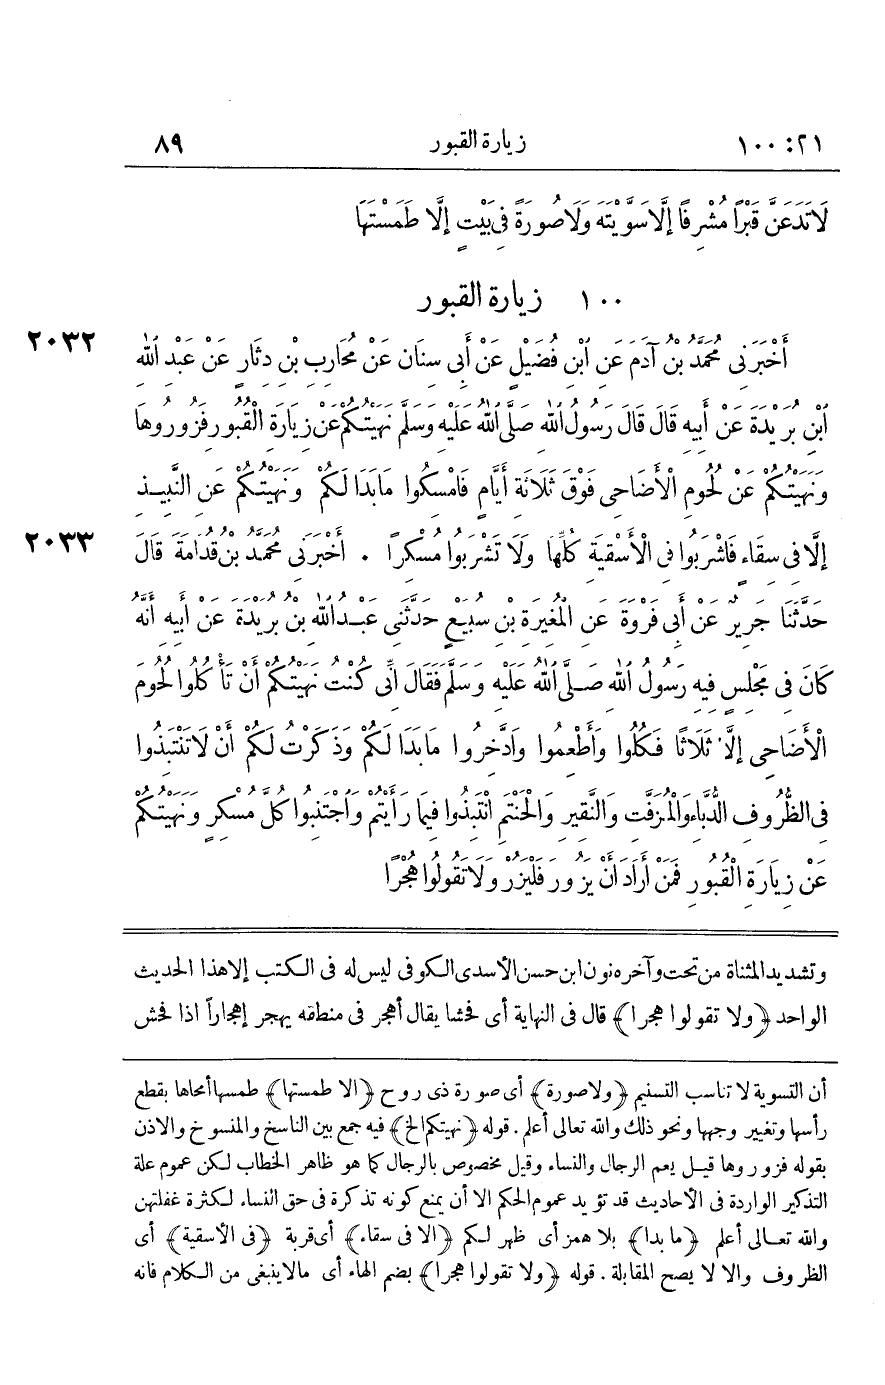 ٢١: ١٠٠ زيارة القبور ٨٩
لَا تَدَعَنَّ قَبْرًا مُشْرِفًا إِلَّا سَوَّيْتَهُ وَلَا صُورَةً فِي بَيْتٍ إِلَّا طَمَسْتَهَا
١٠٠ زيارة القبور
٢٠٣٢ أَخْبَرَنِي مُحَمَّدُ بْنُ آدَمَ عَنِ ابْنِ فُضَيْلٍ عَنْ أَبِي سِنَانٍ عَنْ مُحَارِبِ بْنِ دِثَارٍ عَنْ عَبْدِ اللهِ
ابْنِ بُرَيْدَةَ عَنْ أَبِيهِ قَالَ قَالَ رَسُولُ اللهِ صَلَّى اللهُ عَلَيْهِ وَسَلَّمَ نَهَيْتُكُمْ عَنْ زِيَارَةِ الْقُبُورِ فَزُورُوهَا
وَنَهَيْتُكُمْ عَنْ لُحُومِ الْأَضَاحِي فَوْقَ ثَلَاثَةِ أَيَّامٍ فَامْسِكُوا مَا بَدَا لَكُمْ وَنَهَيْتُكُمْ عَنِ النَّبِيذِ
٢٠٣٣ إِلَّا فِي سِقَاءٍ فَاشْرَبُوا فِي الْأَسْقِيَةِ كُلِّهَا وَلَا تَشْرَبُوا مُسْكِرًا . أَخْبَرَنِي مُحَمَّدُ بْنُ قُدَامَةَ قَالَ
حَدَّثَنَا جَرِيرٌ عَنْ أَبِي فَرْوَةَ عَنِ الْمُغِيرَةِ بْنِ سُبَيْعٍ حَدَّثَنِي عَبْدُ اللهِ بْنُ بُرَيْدَةَ عَنْ أَبِيهِ أَنَّهُ
كَانَ فِي مَجْلِسٍ فِيهِ رَسُولُ اللهِ صَلَّى اللهُ عَلَيْهِ وَسَلَّمَ فَقَالَ إِنِّي كُنْتُ نَهَيْتُكُمْ أَنْ تَأْكُلُوا لُحُومَ
الْأَضَاحِي إِلَّا ثَلَاثًا فَكُلُوا وَأَطْعِمُوا وَادَّخِرُوا مَا بَدَا لَكُمْ وَذَكَرْتُ لَكُمْ أَنْ لَا تَنْتَبِذُوا
فِي الظُّرُوفِ الدُّبَّاءِ وَالْمُزَفَّتِ وَالنَّقِيرِ وَالْحَنْتَمِ انْتَبِذُوا فِيمَا رَأَيْتُمْ وَاجْتَنِبُوا كُلَّ مُسْكِرٍ وَنَهَيْتُكُمْ
عَنْ زِيَارَةِ الْقُبُورِ فَمَنْ أَرَادَ أَنْ يَزُورَ فَلْيَزُرْ وَلَا تَقُولُوا هُجْرًا
وتشديد المثناة من تحت وآخره نون ابن حسن الأسدى الكوفى ليس له فى الكتب إلا هذا الحديث
الواحد ﴿ولا تقولوا هجرا﴾ قال فى النهاية أى فحشا يقال أهجر فى منطقه يهجر إهجاراً اذا فحش
أن التسوية لا تناسب التسنيم ﴿ولاصورة﴾ أى صورة ذى روح ﴿الا طمستها﴾ طمسها أمحاها بقطع
رأسها وتغيير وجهها ونحو ذلك والله تعالى أعلم . قوله ﴿نهيتكم الخ﴾ فيه جمع بين الناسخ والمنسوخ والاذن
بقوله فزوروها قيل يعم الرجال والنساء وقيل مخصوص بالرجال كما هو ظاهر الخطاب لكن عموم علة
التذكير الواردة فى الأحاديث قد تؤيد عموم الحكم الا أن يمنع كونه تذكرة فى حق النساء لكثرة غفلتهن
والله تعالى أعلم ﴿ما بدا﴾ بلا همز أى ظهر لكم ﴿الا فى سقاء﴾ أى قربة ﴿فى الأسقية﴾ أى
الظروف والا لا يصح المقابلة . قوله ﴿ولا تقولوا هجرا﴾ بضم الهاء أى مالا ينبغى من الكلام فانه